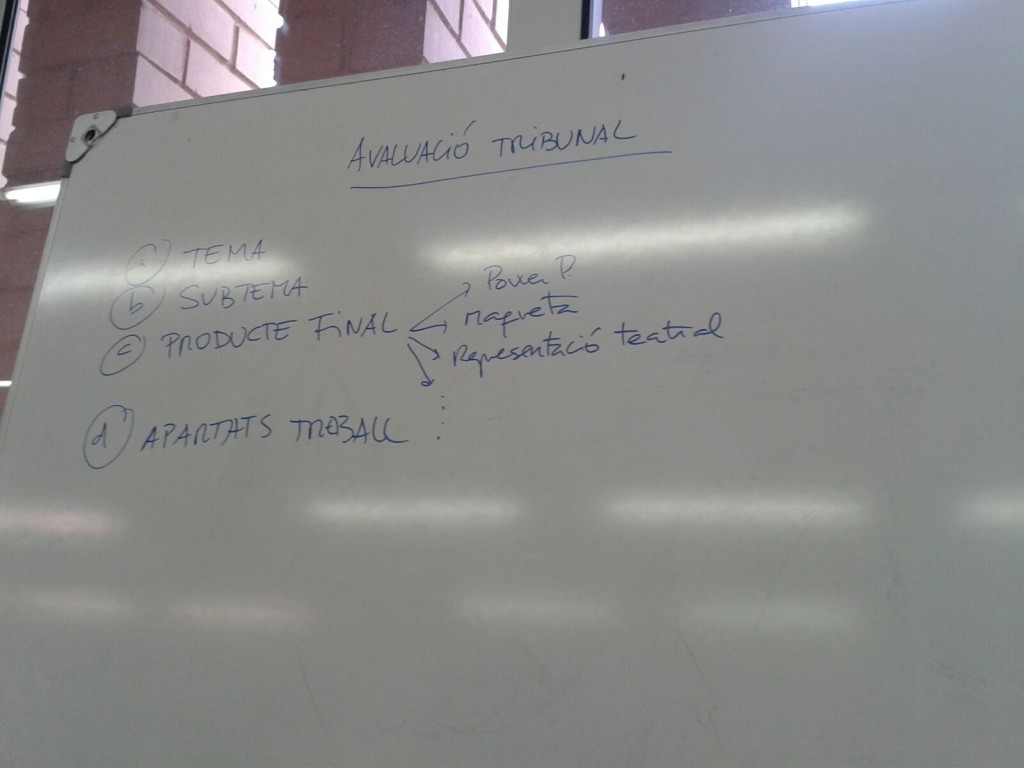 AVALUACIÓ TRIBUNAL
a) TEMA
b) SUBTEMA
c) PRODUCTE FINAL
Power P.
maqueta
Representació teatral
d) APARTATS TREBALL